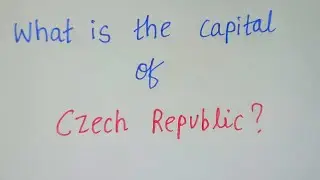 What is the capital
of
Czech Republic?